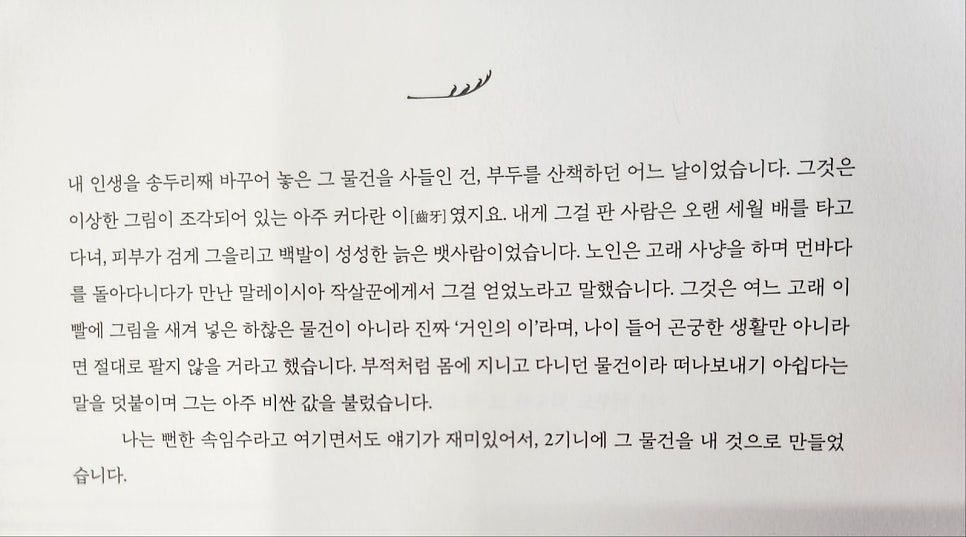 내 인생을 송두리째 바꾸어 놓은 그 물건을 사들인 건, 부두를 산책하던 어느 날이었습니다. 그것은
이상한 그림이 조각되어 있는 아주 커다란 이[齒牙]였지요. 내게 그걸 판 사람은 오랜 세월 배를 타고
다녀, 피부가 검게 그을리고 백발이 성성한 늙은 뱃사람이었습니다. 노인은 고래 사냥을 하며 먼바다
를 돌아다니다가 만난 말레이시아 작살꾼에게서 그걸 얻었노라고 말했습니다. 그것은 여느 고래 이
빨에 그림을 새겨 넣은 하찮은 물건이 아니라 진짜 ‘거인의 이’라며, 나이 들어 곤궁한 생활만 아니라
면 절대로 팔지 않을 거라고 했습니다. 부적처럼 몸에 지니고 다니던 물건이라 떠나보내기 아쉽다는
말을 덧붙이며 그는 아주 비싼 값을 불렀습니다.
나는 뻔한 속임수라고 여기면서도 얘기가 재미있어서, 2기니에 그 물건을 내 것으로 만들었
습니다.